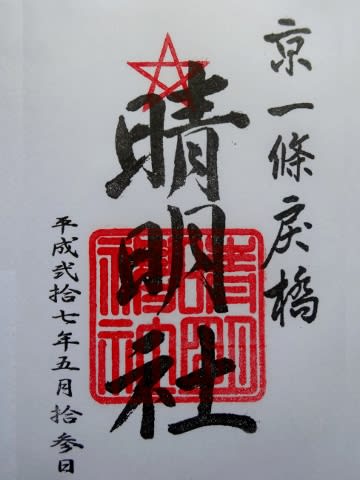 京一條戻橋
晴明社
晴明神社
平成弐拾七年五月拾参日